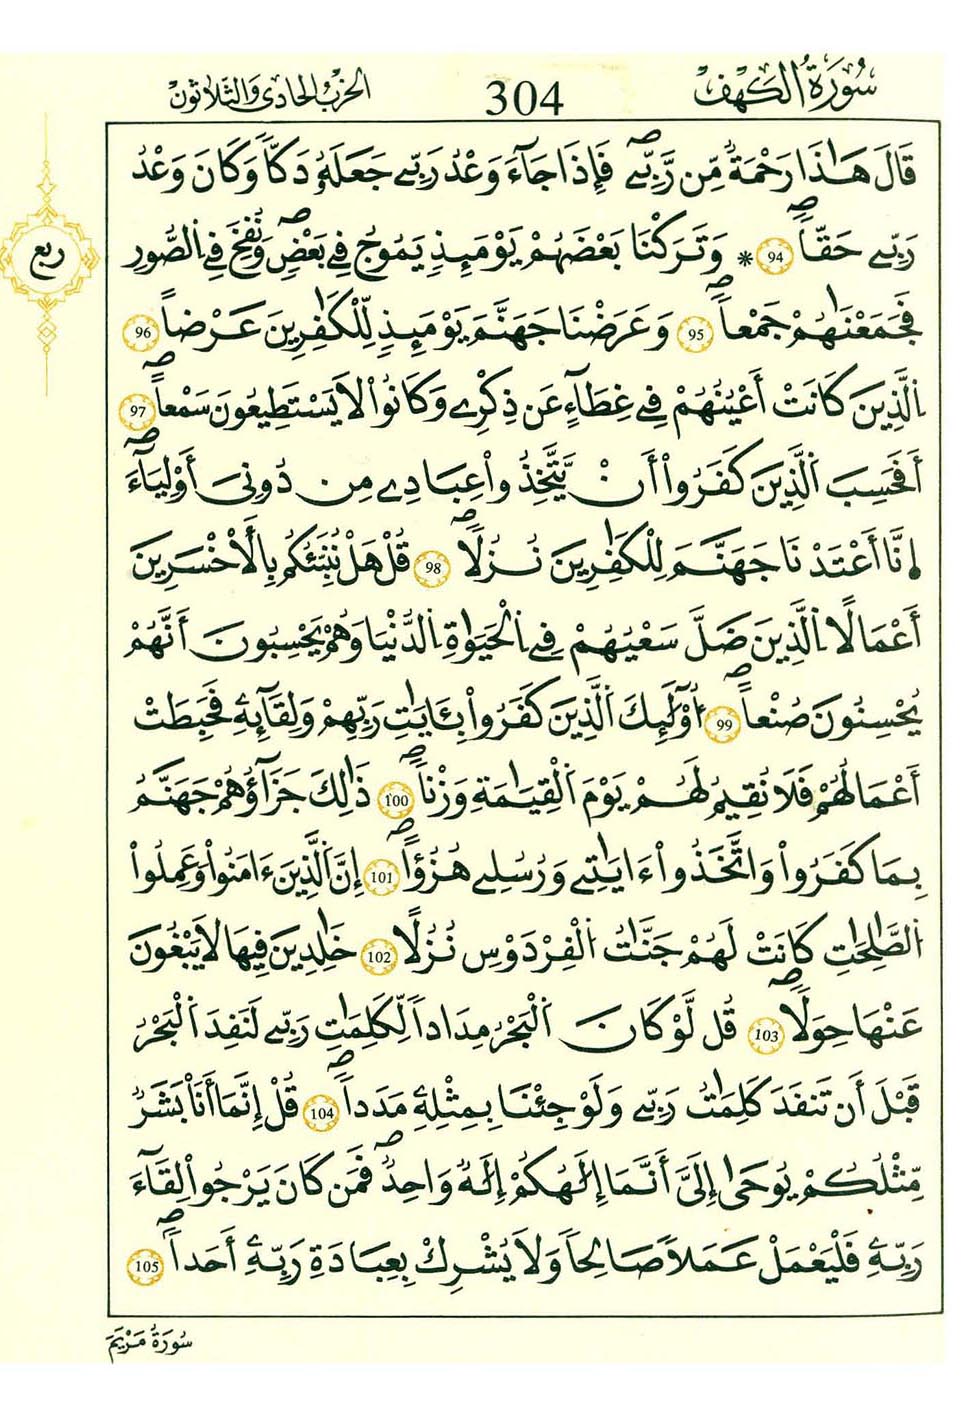 سُورَةُ الْكَهْفِ 304 الحِزْبُ الحَادِي وَالثَّلَاثُونَ
قَالَ هَٰذَا رَحْمَةٌ مِّن رَّبِّےۖ فَإِذَا جَآءَ وَعْدُ رَبِّے جَعَلَهُۥ دَكّاٗ وَكَانَ وَعْدُ
رَبِّے حَقّاٗۖ 94 * وَتَرَكْنَا بَعْضَهُمْ يَوْمَئِذٖ يَمُوجُ فِے بَعْضٖۖ وَنُفِخَ فِے اِ۬لصُّورِ
ربع
فَجَمَعْنَٰهُمْ جَمْعاٗۖ 95 وَعَرَضْنَا جَهَنَّمَ يَوْمَئِذٖ لِّلْكَٰفِرِينَ عَرْضاً 96
اِ۬لذِينَ كَانَتْ أَعْيُنُهُمْ فِے غِطَآءٍ عَن ذِكْرِے وَكَانُواْ لَا يَسْتَطِيعُونَ سَمْعاًۖ 97
أَفَحَسِبَ اَ۬لذِينَ كَفَرُوٓاْ أَنْ يَّتَّخِذُواْ عِبَادِے مِن دُونِيَ أَوْلِيَآءَۖ
اِ۪نَّآ أَعْتَدْنَا جَهَنَّمَ لِلْكَٰفِرِينَ نُزُلاٗۖ 98 قُلْ هَلْ نُنَبِّئُكُم بِالْأَخْسَرِينَ
أَعْمَالاً اِ۬لذِينَ ضَلَّ سَعْيُهُمْ فِے اِ۬لْحَيَوٰةِ اِ۬لدُّنْيَا وَهُمْ يَحْسِبُونَ أَنَّهُمْ
يُحْسِنُونَ صُنْعاًۖ 99 ا۟وْلَٰٓئِكَ اَ۬لذِينَ كَفَرُواْ بِـَٔايَٰتِ رَبِّهِمْ وَلِقَآئِهِۦ فَحَبِطَتْ
أَعْمَٰلُهُمْ فَلَا نُقِيمُ لَهُمْ يَوْمَ اَ۬لْقِيَٰمَةِ وَزْناٗۖ 100 ذَٰلِكَ جَزَآؤُهُمْ جَهَنَّمُ
بِمَا كَفَرُواْ وَاتَّخَذُوٓاْ ءَايَٰتِے وَرُسُلِے هُزُؤاًۖ 101 إِنَّ اَ۬لذِينَ ءَامَنُواْ وَعَمِلُواْ
اُ۬لصَّٰلِحَٰتِ كَانَتْ لَهُمْ جَنَّٰتُ اُ۬لْفِرْدَوْسِ نُزُلاً 102 خَٰلِدِينَ فِيهَا لَا يَبْغُونَ
عَنْهَا حِوَلاٗۖ 103 قُل لَّوْ كَانَ اَ۬لْبَحْرُ مِدَاداٗ لِّكَلِمَٰتِ رَبِّے لَنَفِدَ اَ۬لْبَحْرُ
قَبْلَ أَن تَنفَدَ كَلِمَٰتُ رَبِّے وَلَوْ جِئْنَا بِمِثْلِهِۦ مَدَداٗۖ 104 قُلْ إِنَّمَآ أَنَا۠ بَشَرٌ
مِّثْلُكُمْ يُوحَىٰٓ إِلَيَّ أَنَّمَآ إِلَٰهُكُمْ إِلَٰهٌ وَاحِدٌۖ فَمَن كَانَ يَرْجُواْ لِقَآءَ
رَبِّهِۦ فَلْيَعْمَلْ عَمَلاٗ صَٰلِحاٗ وَلَا يُشْرِكْ بِعِبَادَةِ رَبِّهِۦٓ أَحَداٗۖ 105
سُورَةُ مَرْيَمَ